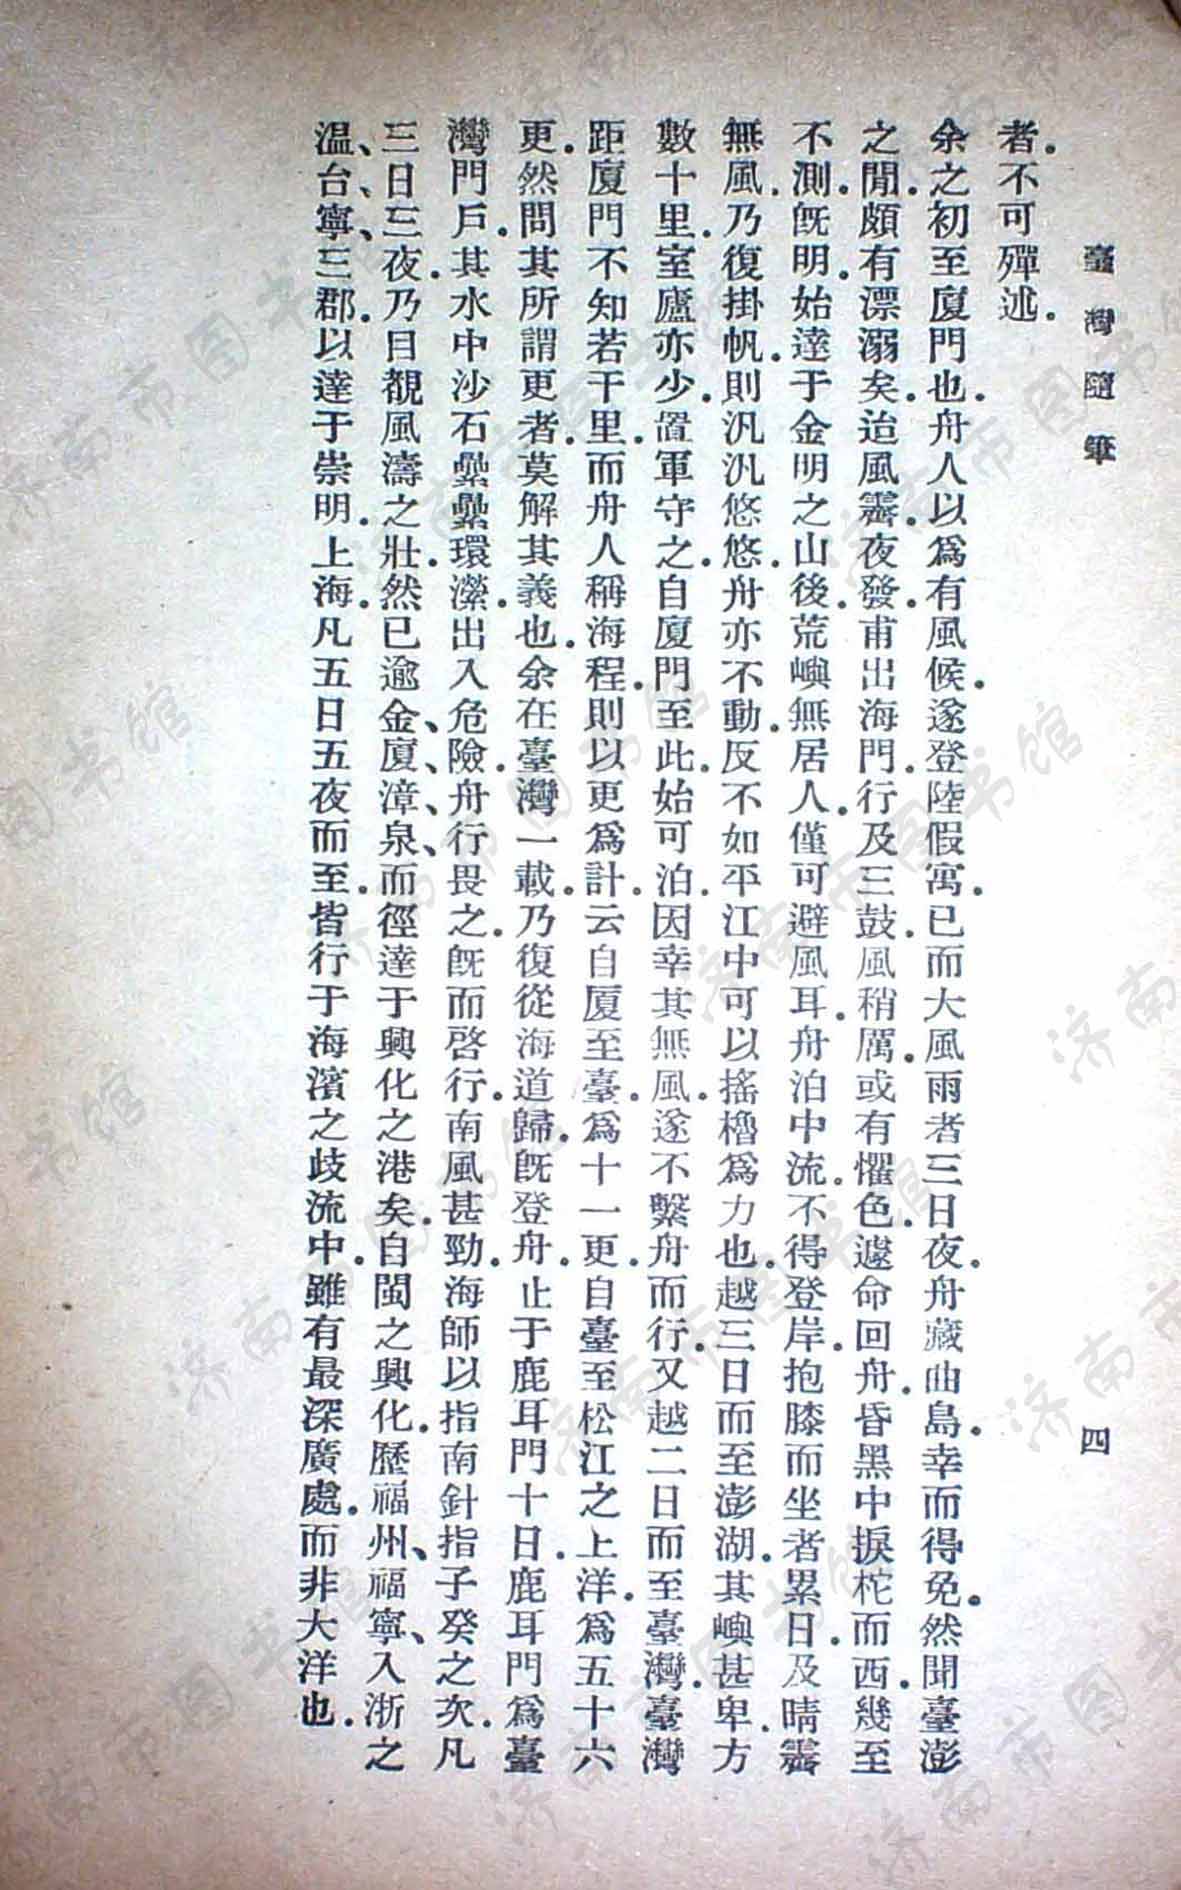 臺灣隨筆
四
者。不可殫述。
余之初至廈門也。舟人以爲有風候。遂登陸假寓。已而大風雨者三日夜。舟藏曲島。幸而得免。然聞臺澎
之間。頗有漂溺矣。迨風霽。夜發。甫出海門。行及三鼓。風稍厲。或有懼色。遽命回舟。昏黑中捩柁而西。幾至
不測。旣明。始達于金明之山後。荒嶼無居人。僅可避風耳。舟泊中流。不得登岸。抱膝而坐者累日。及晴霽
無風。乃復掛帆。則汎汎悠悠。舟亦不動。反不如平江中可以搖櫓爲力也。越三日而至澎湖。其嶼甚卑。方
數十里。室廬亦少。置軍守之。自廈門至此。始可泊。因幸其無風。遂不繫舟而行。又越二日而至臺灣。臺灣
距廈門不知若干里。而舟人稱海程。則以更爲計。云自厦至臺。爲十一更。自臺至松江之上洋。爲五十六
更。然問其所謂更者。莫解其義也。余在臺灣一載。乃復從海道歸。旣登舟。止于鹿耳門十日。鹿耳門爲臺
灣門戶。其水中沙石纍纍環瀠。出入危險。舟行畏之。旣而啓行。南風甚勁。海師以指南針指子癸之次。凡
三日三夜。乃日觀風濤之壯。然已逾金、廈、漳、泉、而徑達于興化之港矣。自閩之興化。歷福州、福寧、入浙之
温、台、寧、三郡。以達于崇明。上海。凡五日五夜而至。皆行于海濱之歧流中。雖有最深廣處。而非大洋也。
济南市图书馆